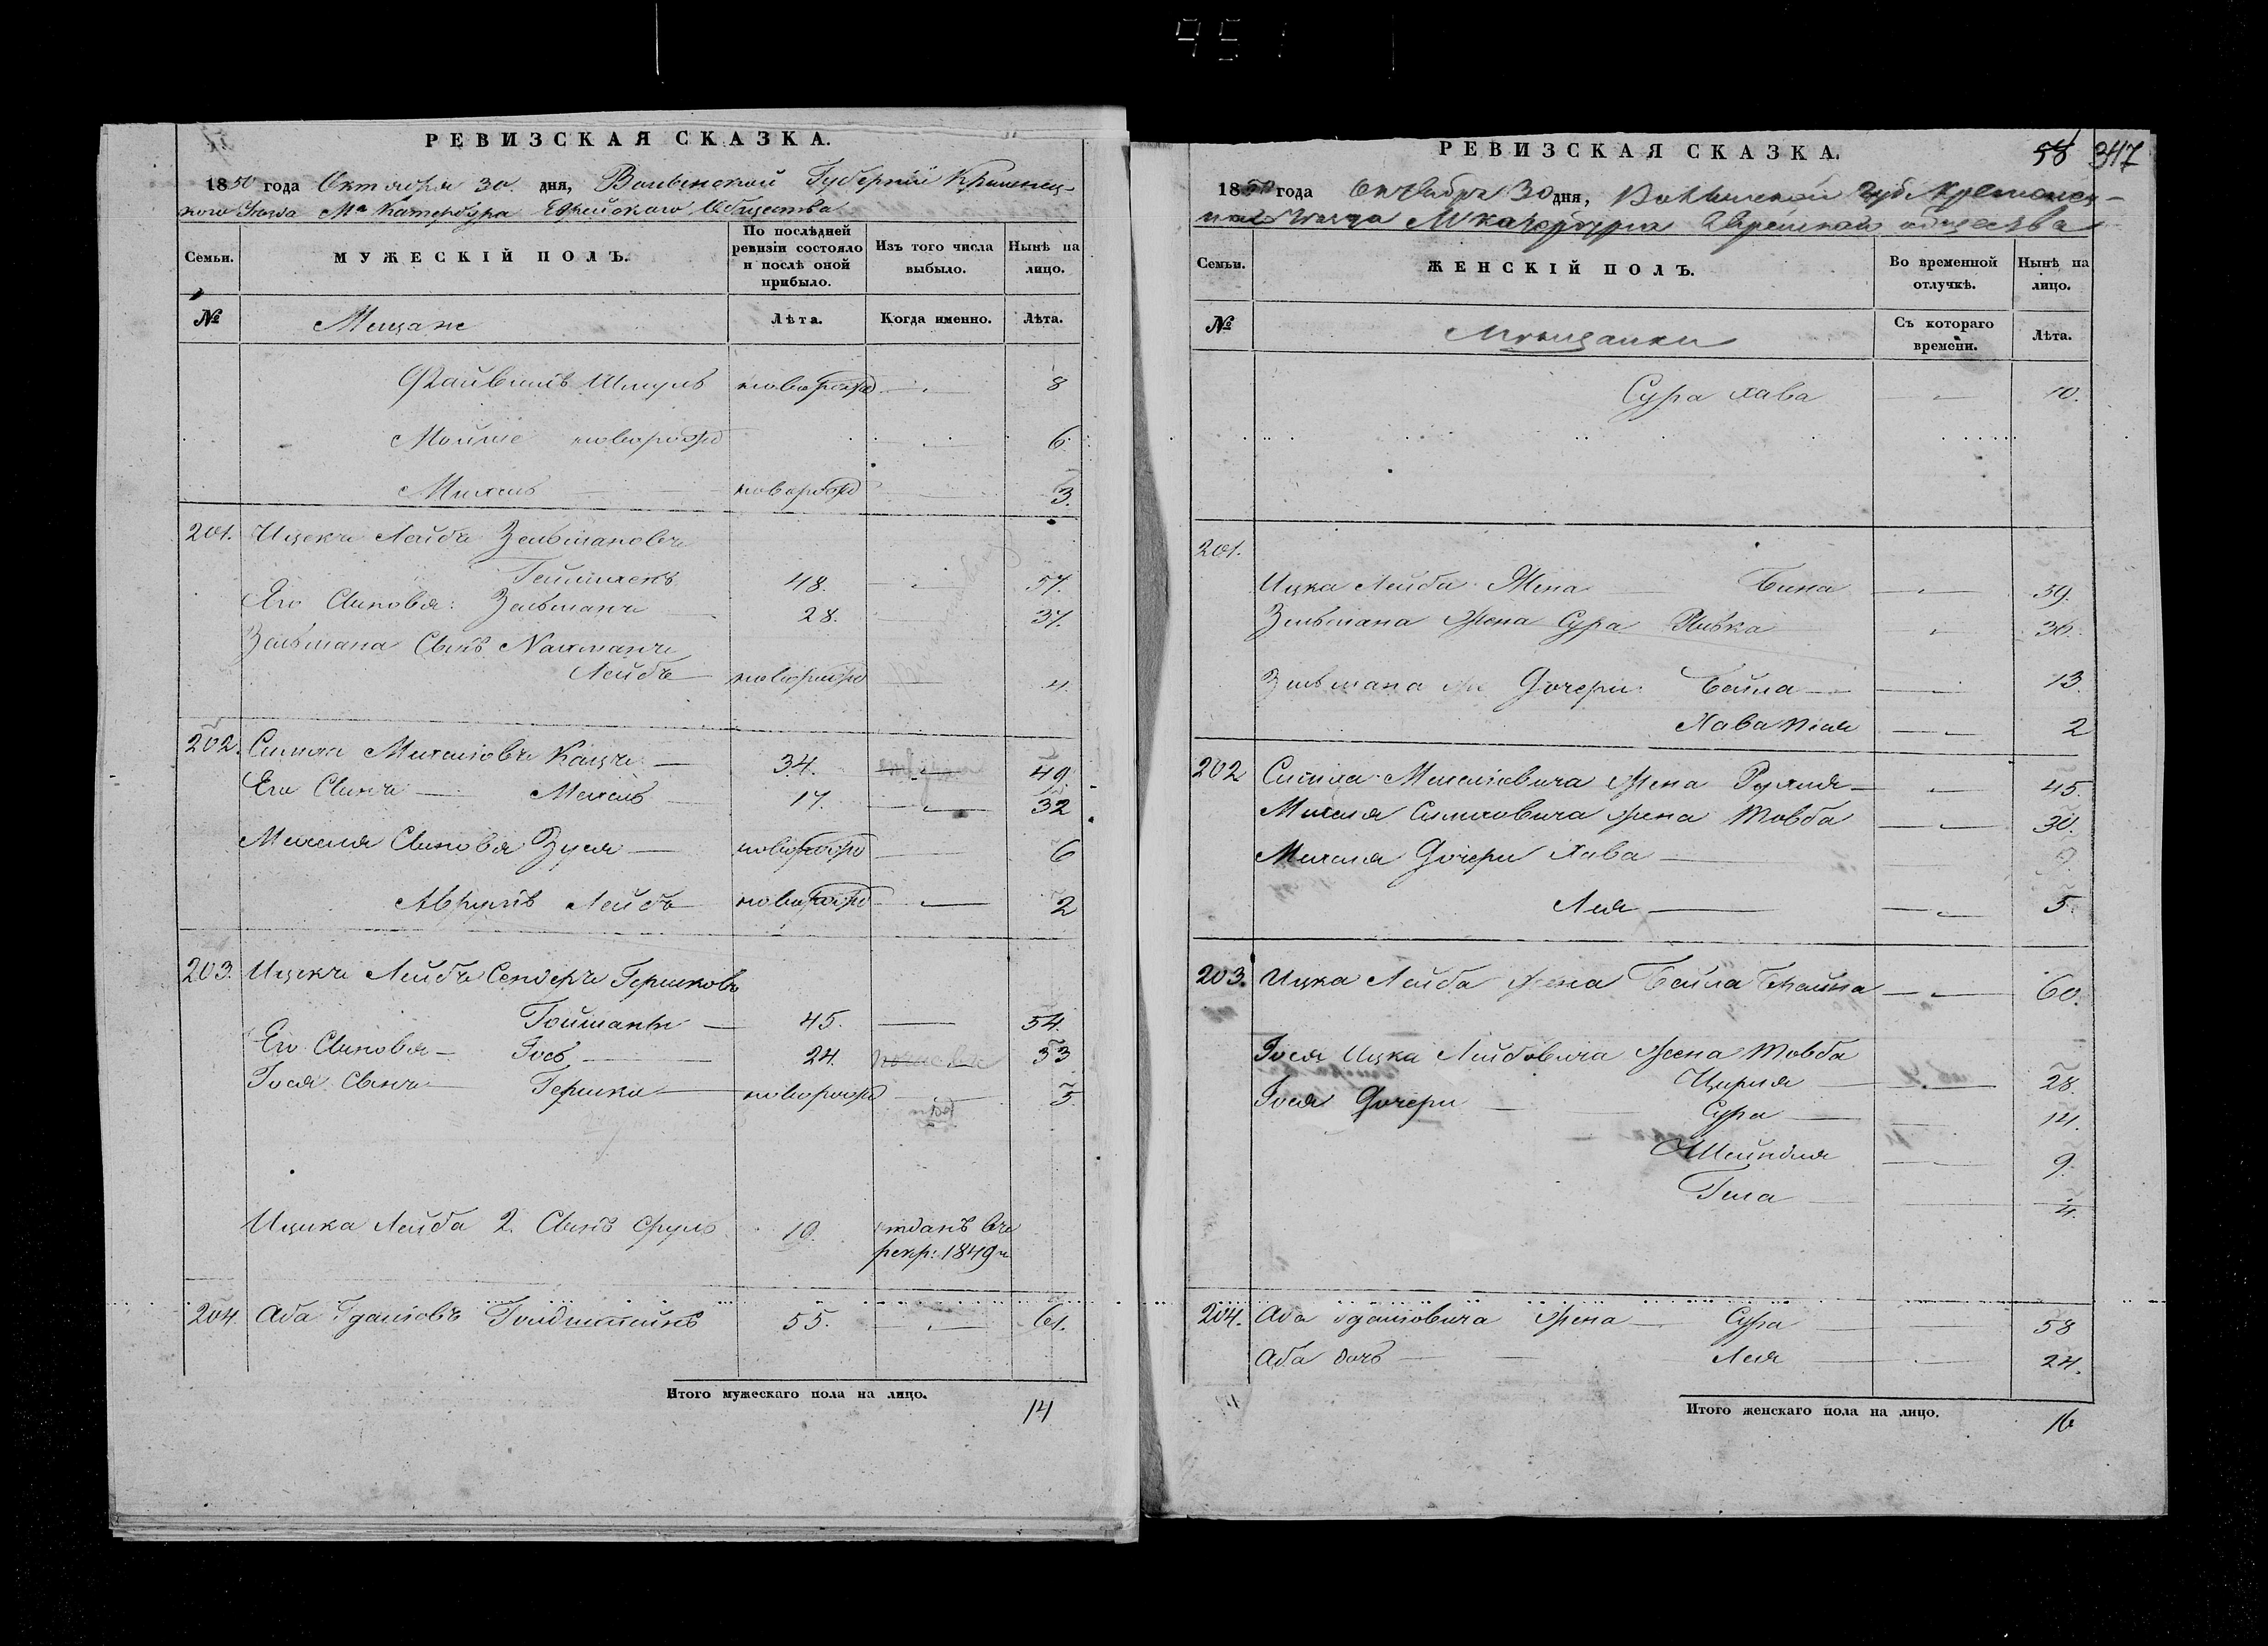 РЕВИЗСКАЯ СКАЗКА.
1850 года Октября 30 дня, Волынской Губернии Кременец-
кого Уезда Мa Катербура Еврейского Общества
Семьи.
МУЖЕСКІЙ ПОЛЪ.
По послѣдней ревизіи состояло и послѣ оной прибыло.
Изъ того числа выбыло.
Нынѣ на лицо.
№
Мещане
Лѣта.
Когда именно.
Лѣта.
Файвишъ Шмуль новорожд 8
Мойше новорожд 6.
Михель новорожд 3.
201. Ицекъ Лейбъ Зельмановъ
48. 57.
Его Сыновья: Зельманъ 28. 37.
Зельмана Сынъ Нахманъ
Лейбъ новорожд 4.
202. Симха Михелiовъ Кацъ 34. 49
Его Сынъ Михель 17. 32
Михеля Сыновья Зуся новорожд 6
Аврумъ Лейбъ новорожд 2
203. Ицекъ Лейбъ Сендеръ Гершковъ
Гойманъ 45. 54.
Его Сыновья Іось 24. 33
Іося Сынъ Гершко новорожд 5
Ицика Лейба 2 Сынъ Сруль 10. отданъ въ
рекр: 1849 г.
204. Аба Гдалiовъ Голдштейнъ 55. 61.
Итого мужескаго пола на лицо.
14
РЕВИЗСКАЯ СКАЗКА.
58 347
1850 года Октября 30 дня, Волынской Губ Кременец-
кого Уезда М Катербурга Еврейскаго общества
Семьи.
ЖЕНСКІЙ ПОЛЪ.
Во временной отлучкѣ.
Нынѣ на лицо.
№
Мещанки
Съ котораго времени.
Лѣта.
Сура Хава 10.
201.
Ицка Лейба Жена Бина 59.
Зельмана Жена Сура Ривка 36.
Зельмана Дочери: Бейла 13.
Хава 2
202 Симха Михелiовича Жена Рухля 45.
Михеля Симховича Жена Товба 30.
Михеля Дочери Хава 9.
Лея 5.
203. Ицка Лейба Жена Бейла 60.
Іося Ицка Лейбовича Жена Товба
28.
Іося Дочери Сура 14.
Шейндля 9.
Гела 4.
204. Аба Гдалiовича Жена Сура 58
Аба дочь Лея 24.
Итого женскаго пола на лицо.
16